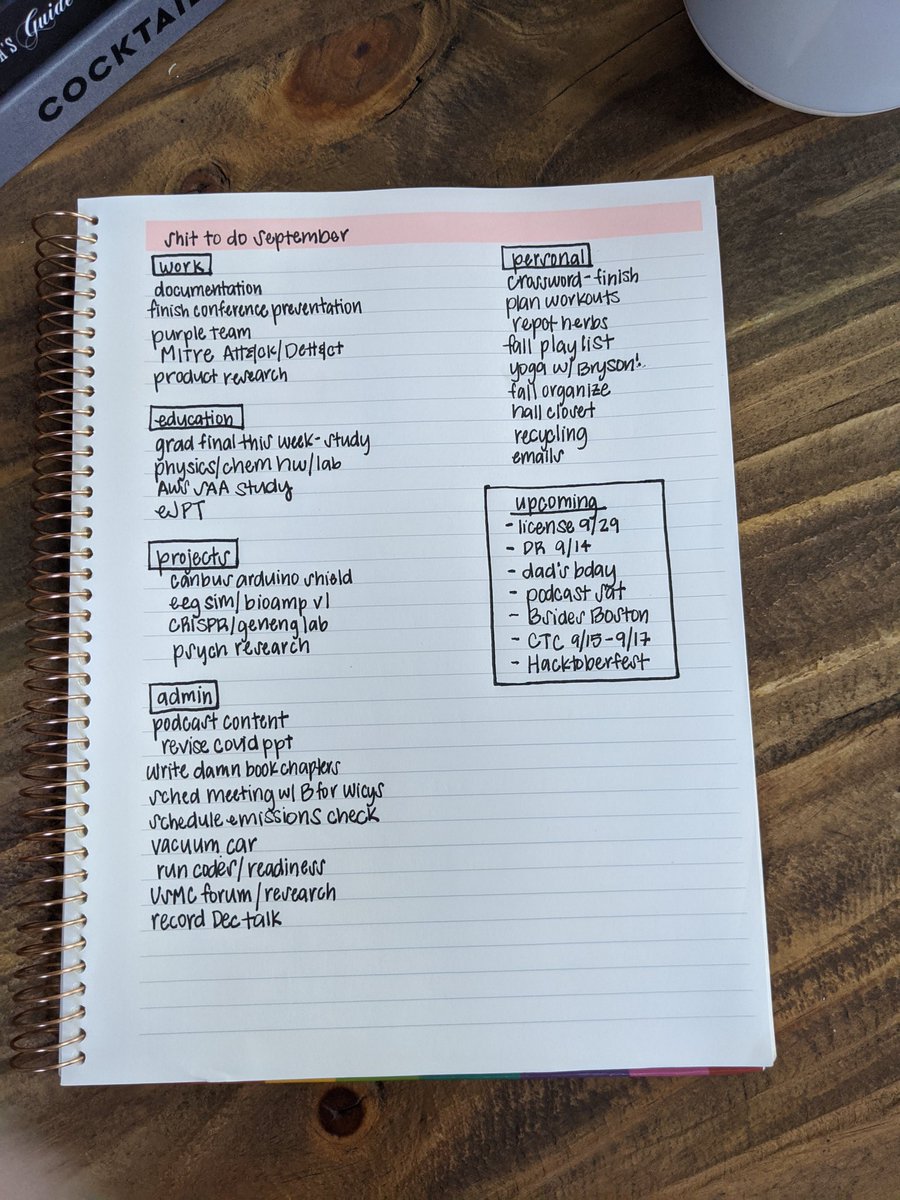 's Guide
COCKTAIL
shit to do september
work
documentation
finish conference presentation
purple team
Mitre Att&ck/Dett&ct
product research
education
grad final this week - study
physics/chem hw/lab
AWS SAA study
eJPT
projects
canbus arduino shield
eeg sim/bioamp v1
CRISPR/geneng lab
psych research
admin
podcast content
revise covid ppt
write damn book chapters
sched meeting w/ B for wicys
schedule emissions check
vacuum car
run codes/readiness
USMC forum/research
record Dec talk
personal
crossword - finish
plan workouts
repot herbs
fall playlist
yoga w/ Bryson!
fall organize
hall closet
recycling
emails
upcoming
- license 9/29
- DR 9/14
- dad's bday
- podcast sat
- Bsides Boston
- CTC 9/15-9/17
- Hacktoberfest